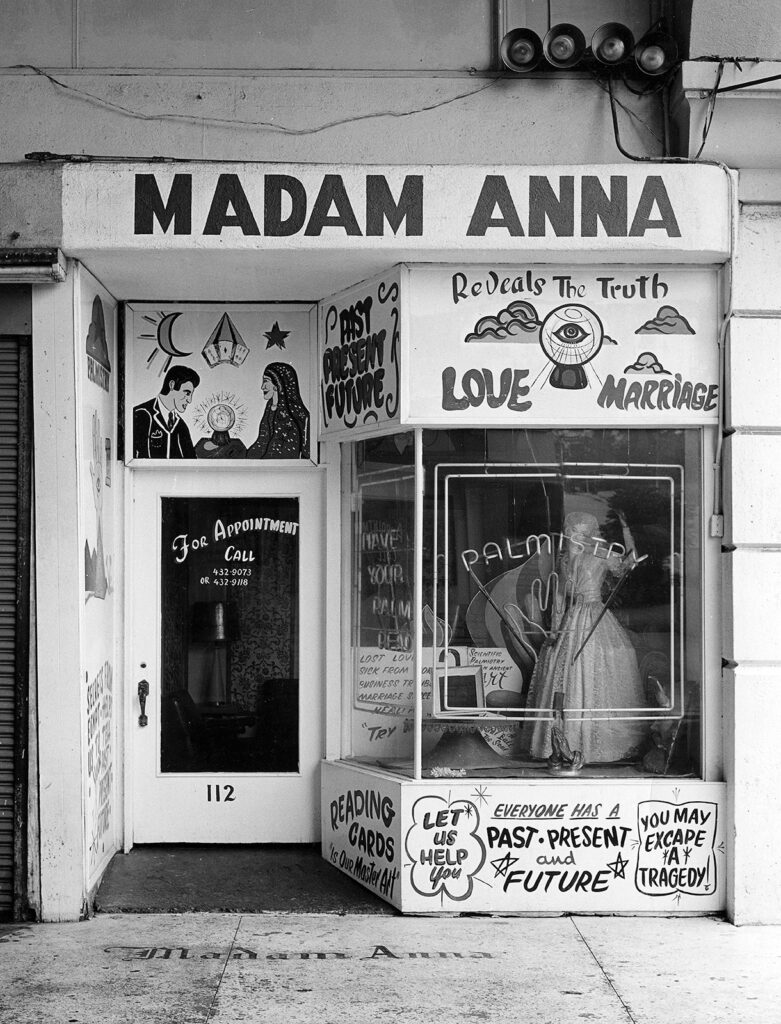 MADAM ANNA
PAST
PRESENT
FUTURE
Reveals The Truth
LOVE
MARRIAGE
PALMISTRY
For Appointment
CALL
432-9073
OR 432-9118
PALMISTRY
HAVE
YOUR
PALM
READ
SCIENTIFIC
PALMISTRY
AN ANCIENT
ART
LOST LOVE
SICK FROM
BUSINESS
MARRIAGE
HEALTH
"TRY
112
READING
CARDS
"Is Our Master Art"
LET
US
HELP
You
EVERYONE HAS A
PAST • PRESENT
and
FUTURE
YOU MAY
EXCAPE
A
TRAGEDY!
Madam Anna